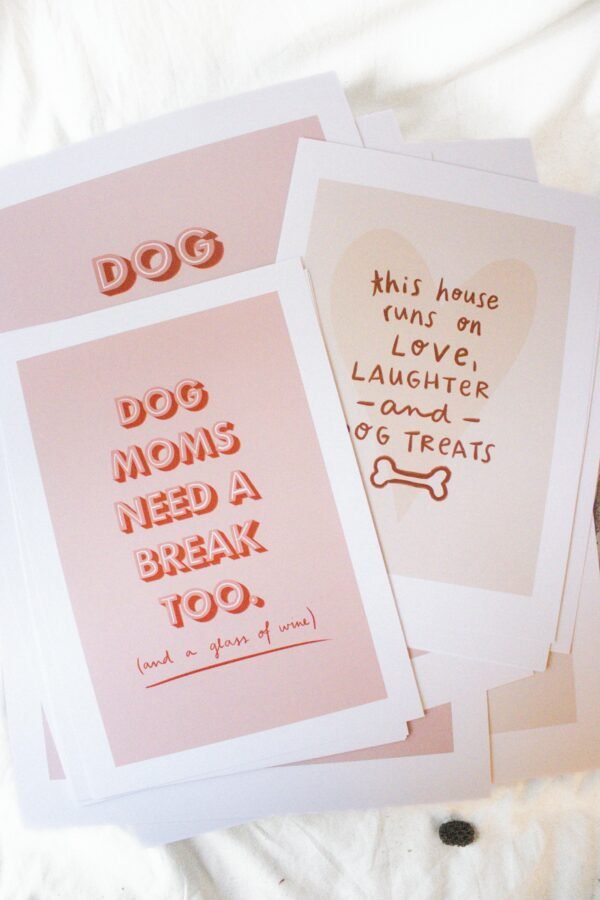 DOG
DOG
MOMS
NEED A
BREAK
TOO.
(and a glass of wine)
this house
runs on
LOVE,
LAUGHTER
- and -
OG TREATS